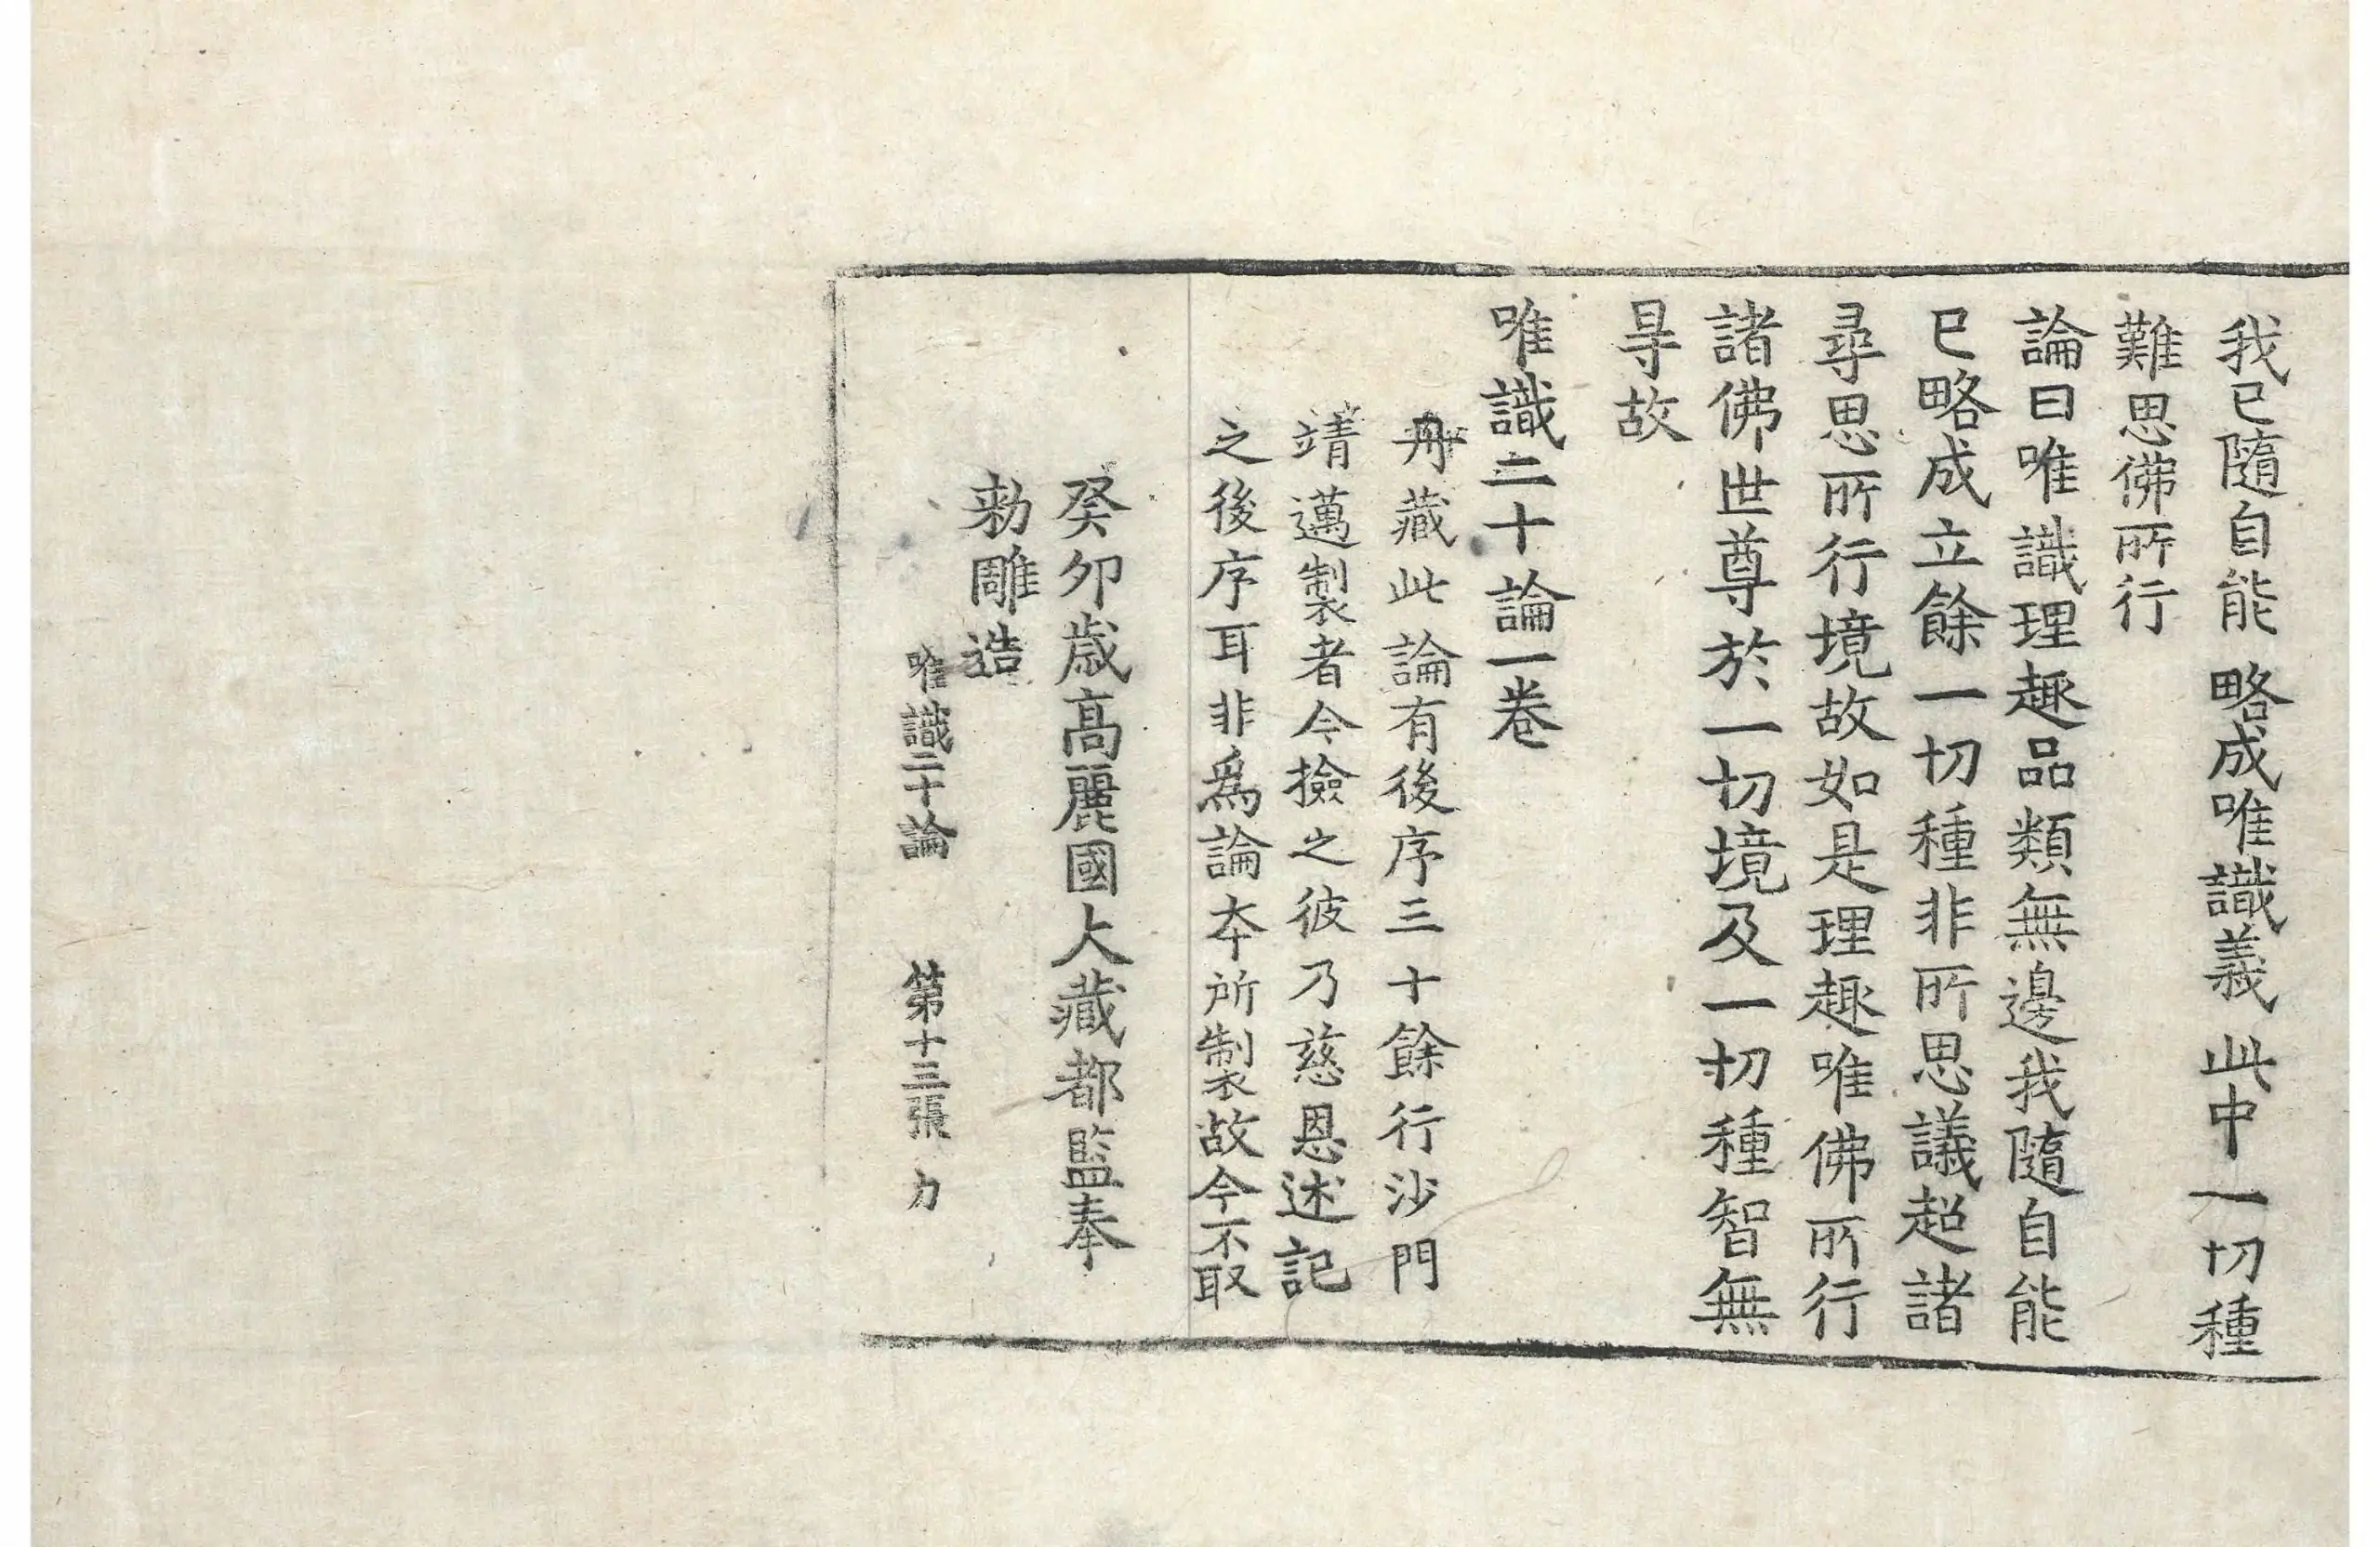 我已隨自能 略成唯識義 此中一切種
難思佛所行
論曰唯識理趣品類無邊我隨自能
已略成立餘一切種非所思議超諸
尋思所行境故如是理趣唯佛所行
諸佛世尊於一切境及一切種智無
㝵故
唯識二十論一卷
丹藏此論有後序三十餘行沙門
靖邁製者今撿之彼乃慈恩述記
之後序耳非爲論夲所製故今不取
癸卯歳高麗國大藏都監奉
勑雕造
唯識二十論 第十三張 力